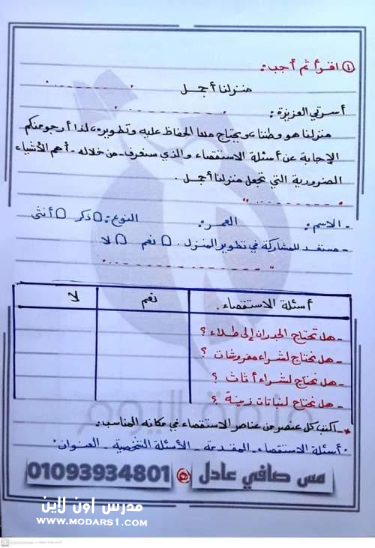 ① اقرأ ثم أجب :
منزلنا أجمل
أسرتي العزيزة :
منزلنا هو وطننا، ويحتاج منا الحفاظ عليه وتطويره، لذا أرجو منكم
الإجابة عن أسئلة الاستقصاء والذي سنعرف من خلاله أهم الأشياء
الضرورية التي تجعل منزلنا أجمل .
- الاسم : العمر : النوع : ذكر أنثى
- مستعد للمشاركة في تطوير المنزل . نعم لا
أسئلة الاستقصاء . نعم لا
- هل تحتاج الجدران إلى طلاء ؟
- هل نحتاج لشراء مفروشات ؟
- هل نحتاج لشراء أثاث ؟
- هل نحتاج لنباتات زينة ؟
* اكتب كل عنصر من عناصر الاستقصاء في مكانه المناسب :
"أسئلة الاستقصاء - المقدمة - الأسئلة الشخصية - العنوان"
مس صافي عادل @ 01093934801
مدرس اون لاين
WWW.MODARS1.COM